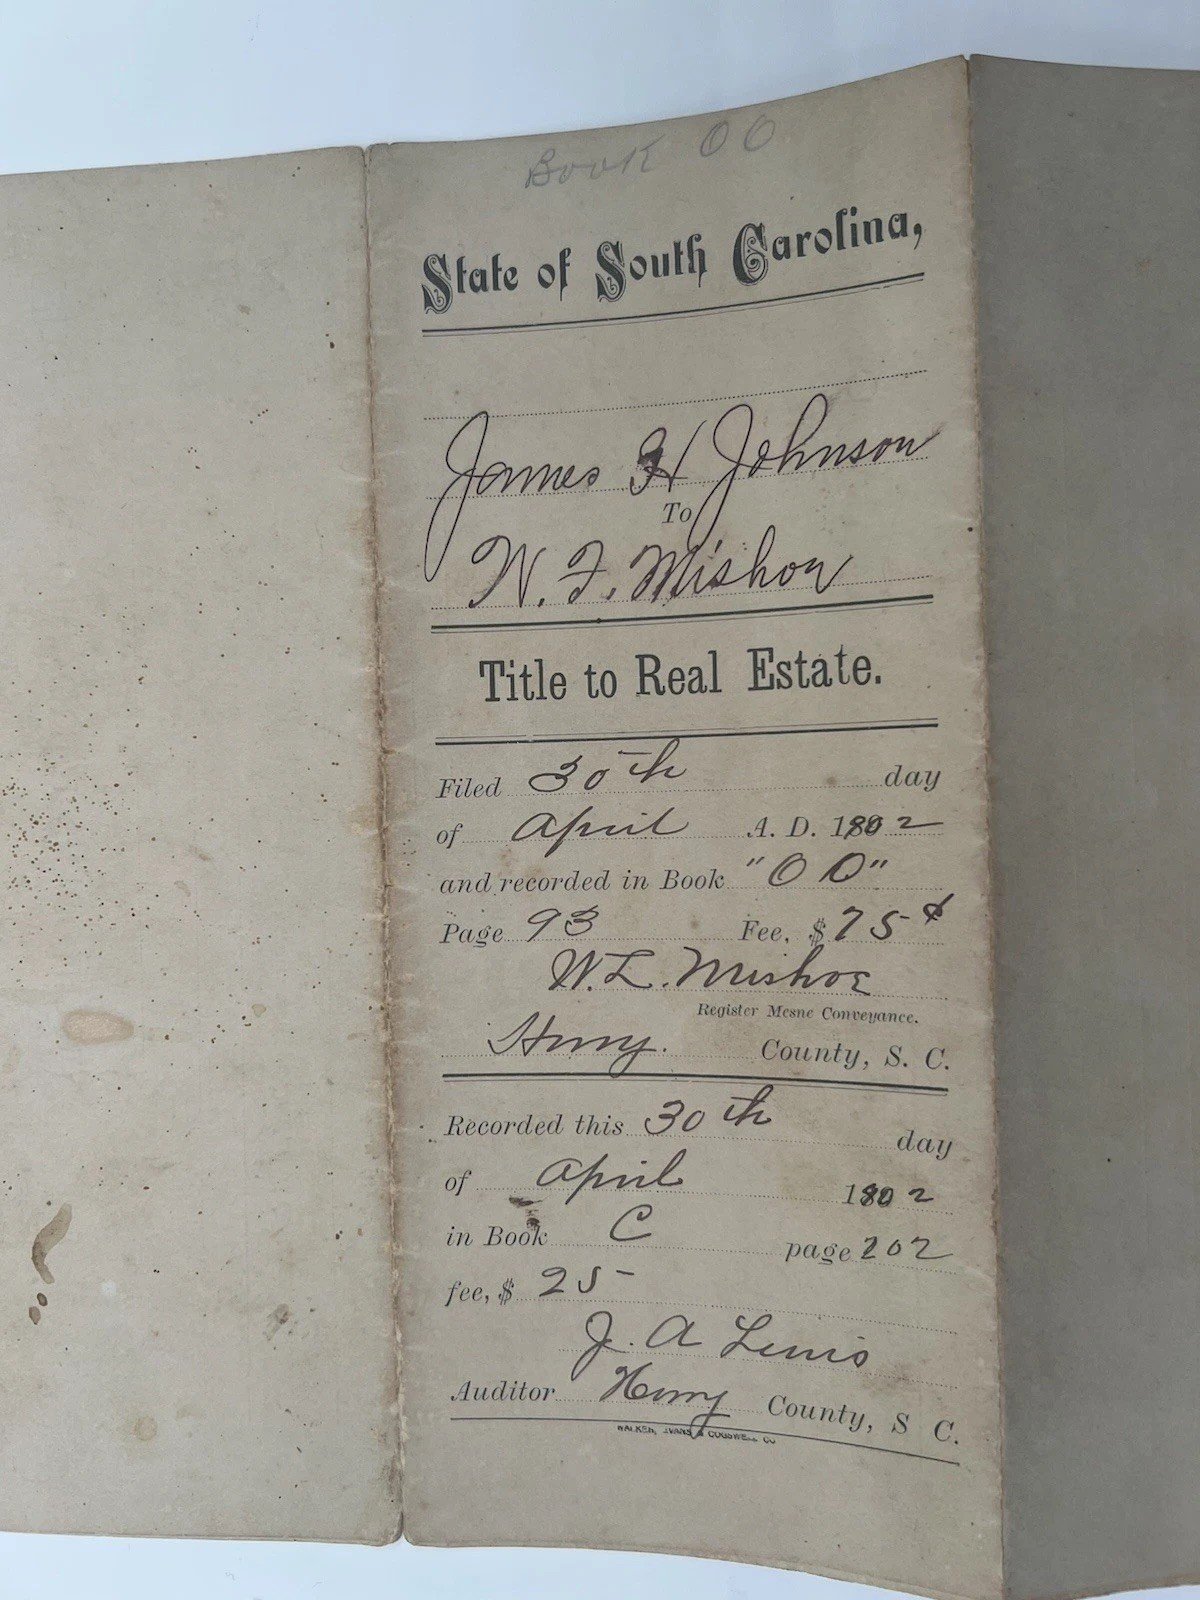 Book OO
State of South Carolina,
James H Johnson
To
W. F. Mishoe
Title to Real Estate.
Filed 30th day
of April A. D. 1802
and recorded in Book "OO"
Page 93 Fee, $ 75¢
W. L. Mishoe
Register Mesne Conveyance.
Horry. County, S. C.
Recorded this 30th day
of April 1802
in Book C page 202
fee, $ 25
J. A Lewis
Auditor Horry County, S C.
WALKER, EVANS & COGSWELL CO